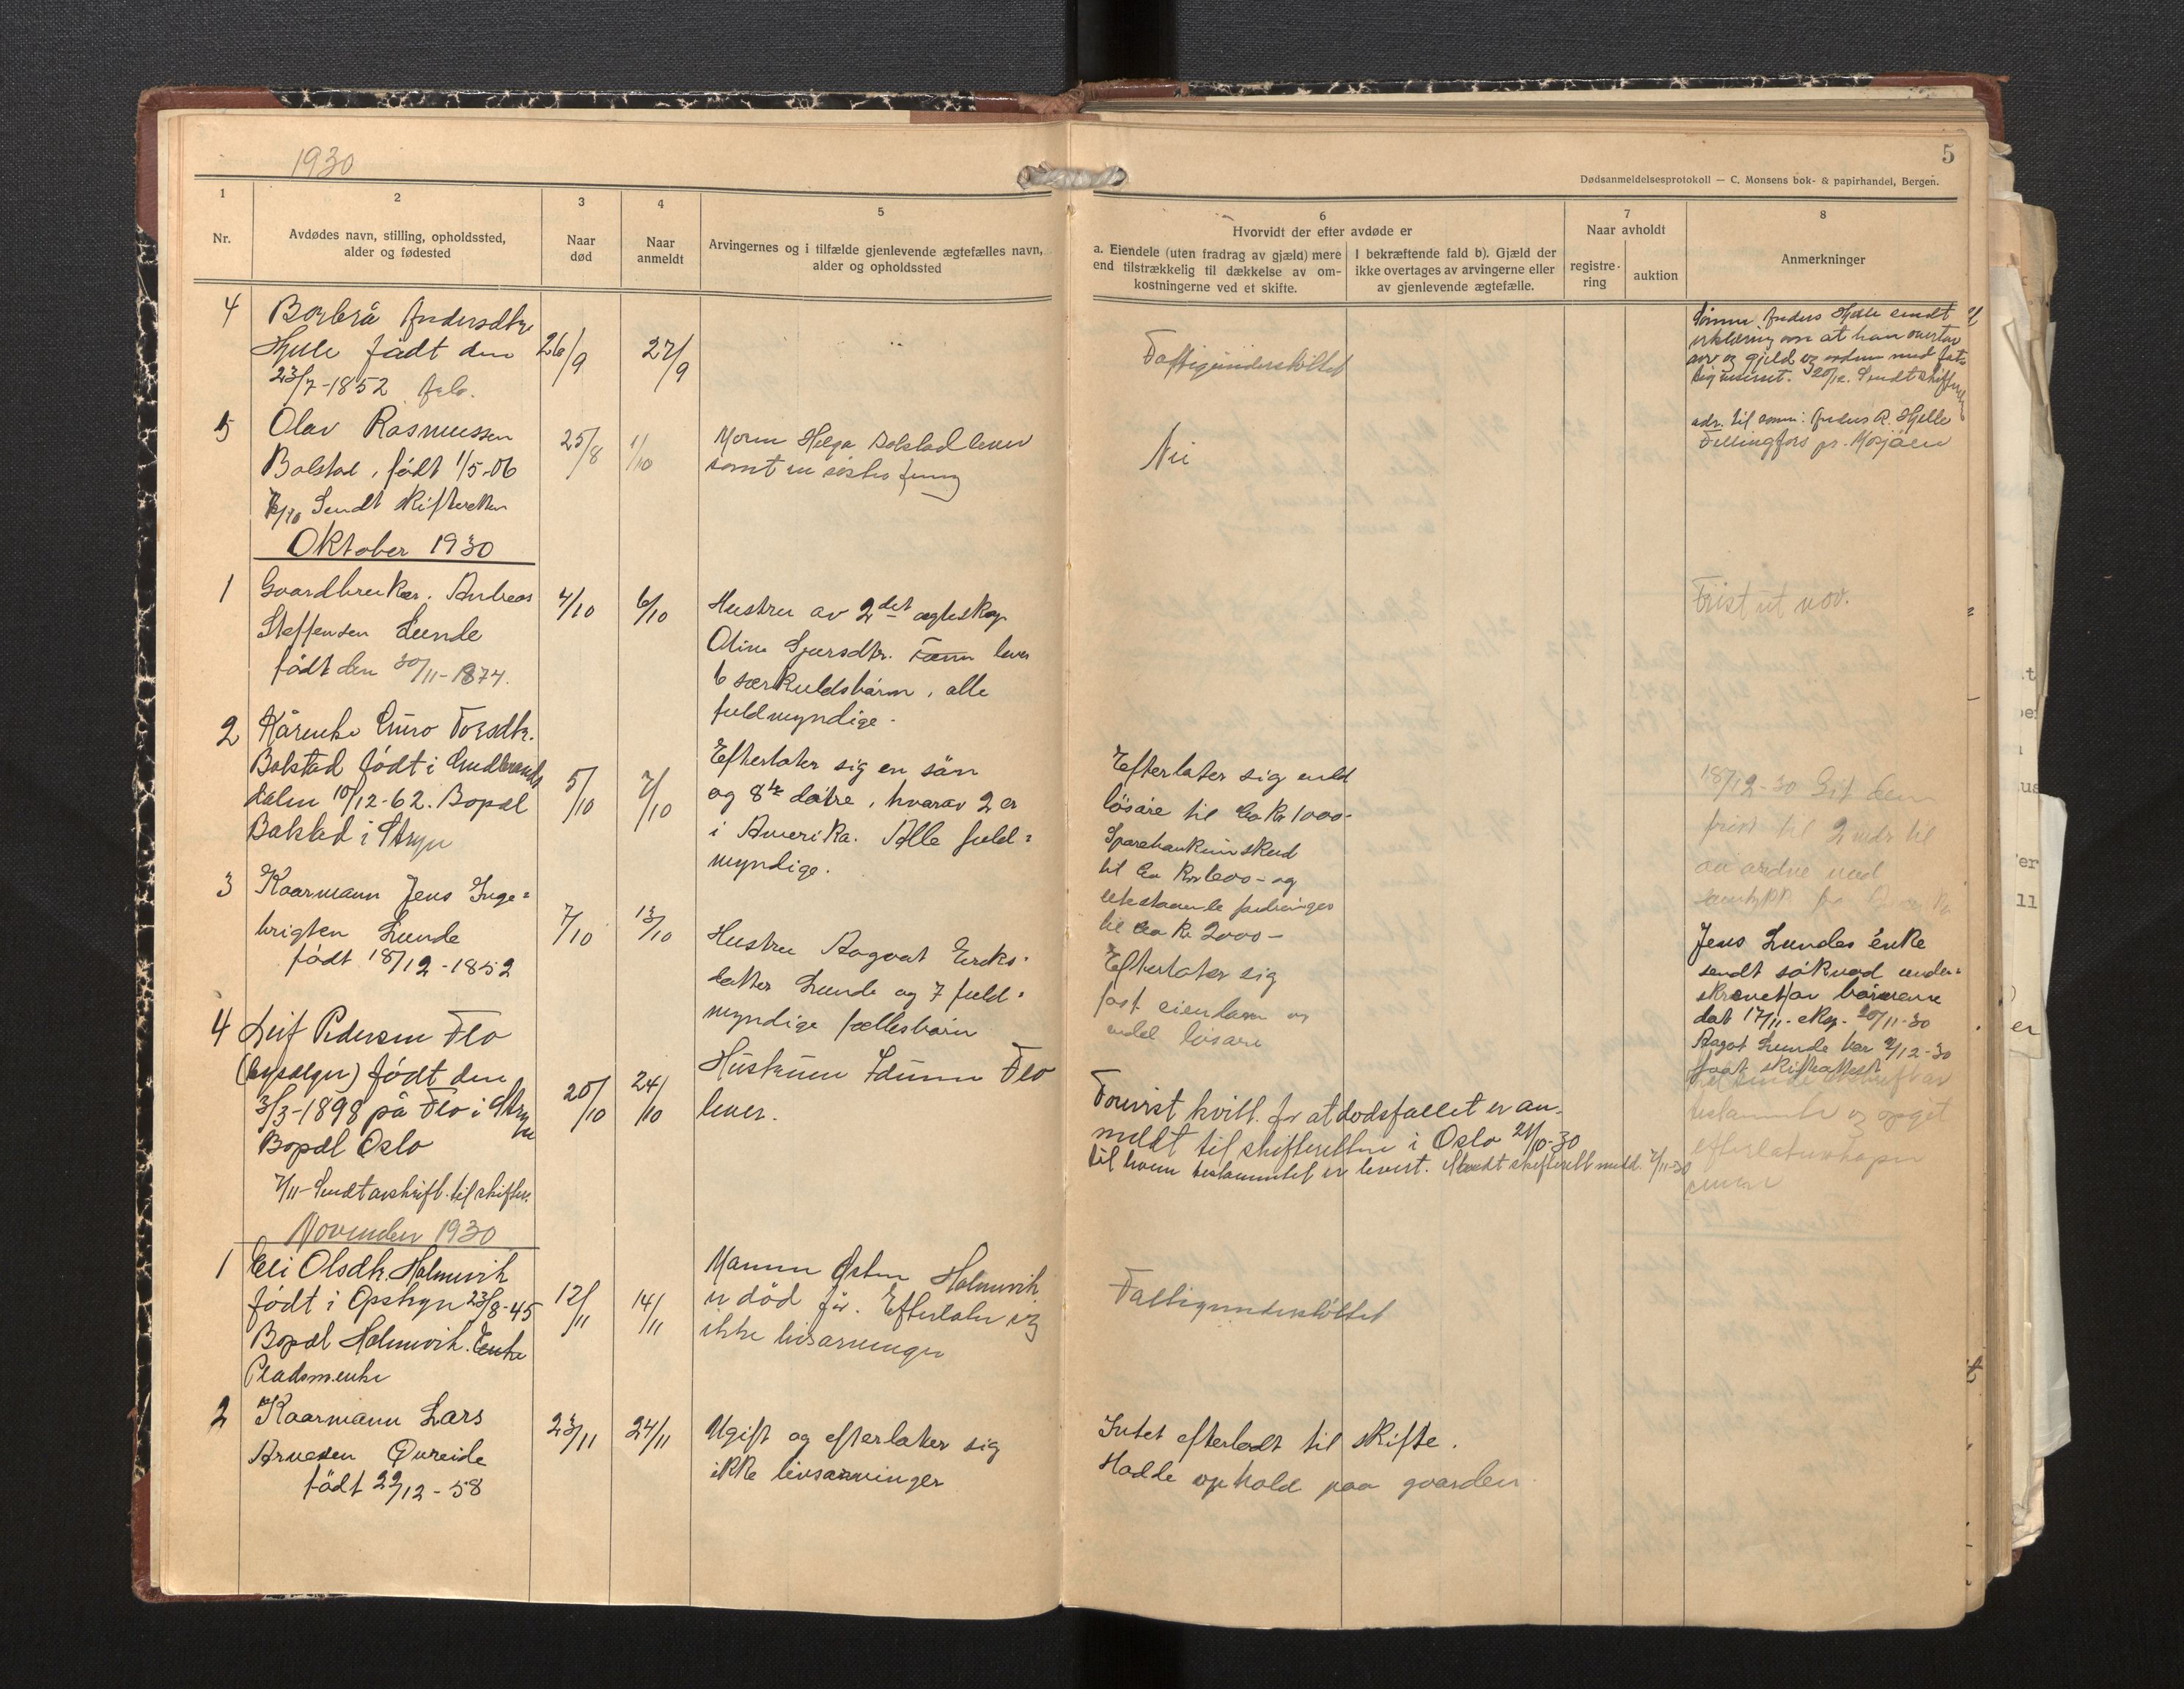 1930
5
Dødsanmeldelsesprotokoll — C. Monsens bok- & papirhandel, Bergen.
1
Nr.
2
Avdødes navn, stilling, opholdssted,
alder og fødested
3
Naar
død
4
Naar
anmeldt
5
Arvingernes og i tilfælde gjenlevende ægtefælles navn,
alder og opholdssted
6
Hvorvidt der efter avdøde er
a. Eiendele (uten fradrag av gjæld) mere
end tilstrækkelig til dækkelse av om-
kostningerne ved et skifte.
I bekræftende fald b). Gjæld der
ikke overtages av arvingerne eller
av gjenlevende ægtefælle.
7
Naar avholdt
registre-
ring
auktion
8
Anmerkninger
4
Borbrå Andersdtr
Hjelle født den
23/7-1852
26/9
27/9
Fattigunderstöttet
Anders Hjelle sendt
erklæring om at han overtar
arv og gjeld og ordner med fat-
20/12. Sendt skifter
5
Olav Rasmussen
Bolstad, født 1/5-06
Sendt skifteretten
25/8
1/10
Moren Helga Bolstad lever
samt en
Nei
adr. til Anders R. Hjelle
pr. Mosjöen
Oktober 1930
1
Gaardbruker. Andreas
Steffensen Lunde
född den 30/11-1874.
4/10
6/10
Hustru av 2det ægteskap
Oline Sjursdtr. lever
6 særkuldsbärn, alle
fuldmyndige.
Frist ut nov.
2
Kårenke Guro Torsdtr.
Bolstad födt i Gudbrands
dalen 10/12-62. Bopæl
Bolstad i Stryn
5/10
7/10
Efterlater sig en sän
og 8te dätre, hvorav 2 er
i Amerika. Alle fuld=
myndige.
Efterlater sig endel
lösöre til Ca Kr 1000-
Sparebankinskud
til Ca Kr og
utestaaende fordringer
til Ca Kr 2000-
18/12-30 Git dem
frist til 2 mdr til
aa ordne med
3
Kaarmann Jens Inge=
brigtsen Lunde
födt 18/12-1852
7/10
13/10
Hustru Aagoat Eriks-
datter Lunde og 7 fuld-
myndige fællesbärn
Efterlater sig
fast eiendom og
endel lösöre
Jens Lundes enke
sendt söknad under=
skrevet av bärnene
dat 17/11. eksp. 20/11-30
Aagot Lunde har 2/12-30
faat skifteattest
4
Leif Pedersen Flo
födt den
3/3-1898 på Flo i Stryn
Bopæl Oslo
7/11-Sendt avskrift til skifter.
20/10
24/10
Hustruen Idunn Flo
lever.
Forevist kvitt. for at dødsfallet er an-
meldt til skifteretten i Oslo 21/10-30
til hvem testamentet er levert. Sendt skifterett meld. 7/11-30
avskrift av
testamente og opgit
November 1930
1
Eli Olsdtr. Holmevik
födt i Opstryn 23/8-45
Bopæl Holmevik. Enke
Pladsmenke
12/11
14/11
Mannen Østen Holmevik
er död før. Efterlater sig
ikke livsarvinger
Fattigunderstöttet
2
Kaarmann Lars
Arnesen Øvreide
födt 22/12-58
23/11
24/11
Ugift og efterlater sig
ikke livsarvinger
Intet efterladt til skifte.
Hadde ophold paa gaarden